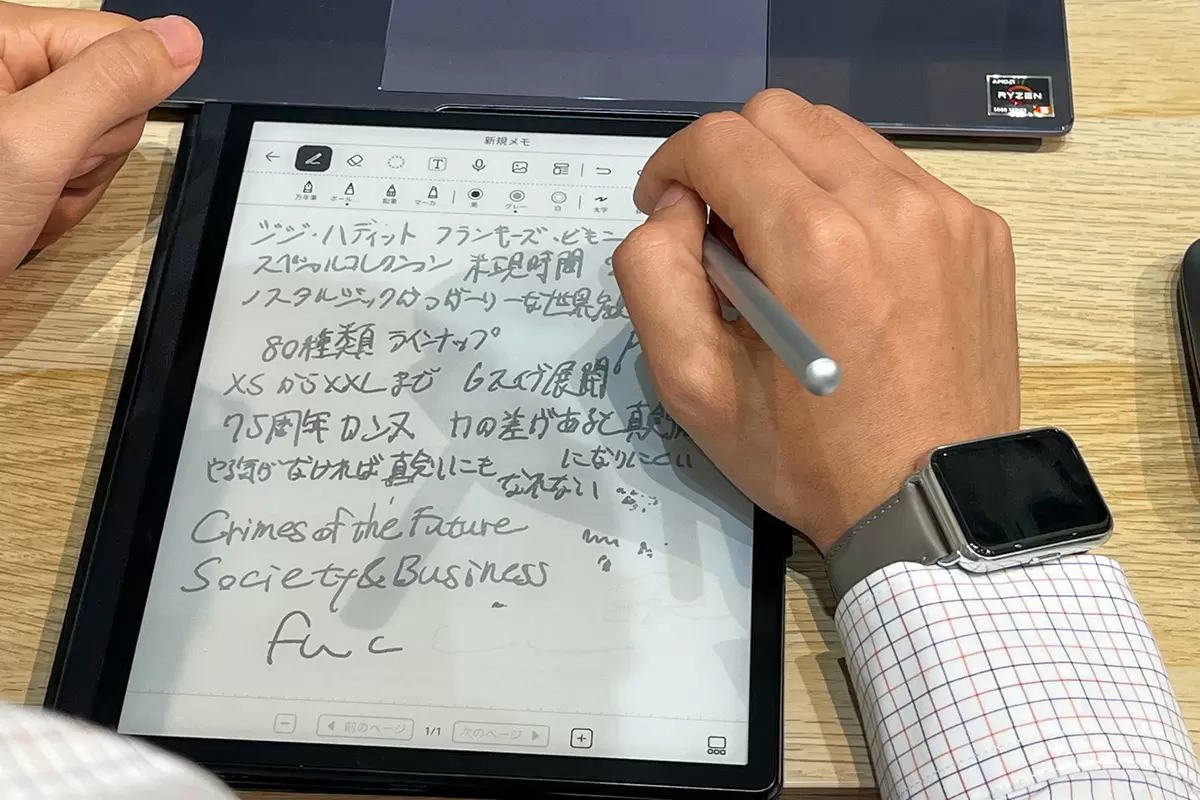 AMD
RYZEN
新規メモ
T
万年筆 ボール 鉛筆 マーカ 黒 グレー 白 太字
ジジ・ハディット フランキーズ・ビキニ
スペシャルコレクション 米現時間
ノスタルジック
80種類 ラインナップ
XSからXXLまで 展開
75周年カンヌ 力の差があると真剣
やる気がなければ真剣にも なれない
になりにくい
Crimes of the Future
Society&Business
func
前のページ 1/1 次のページ